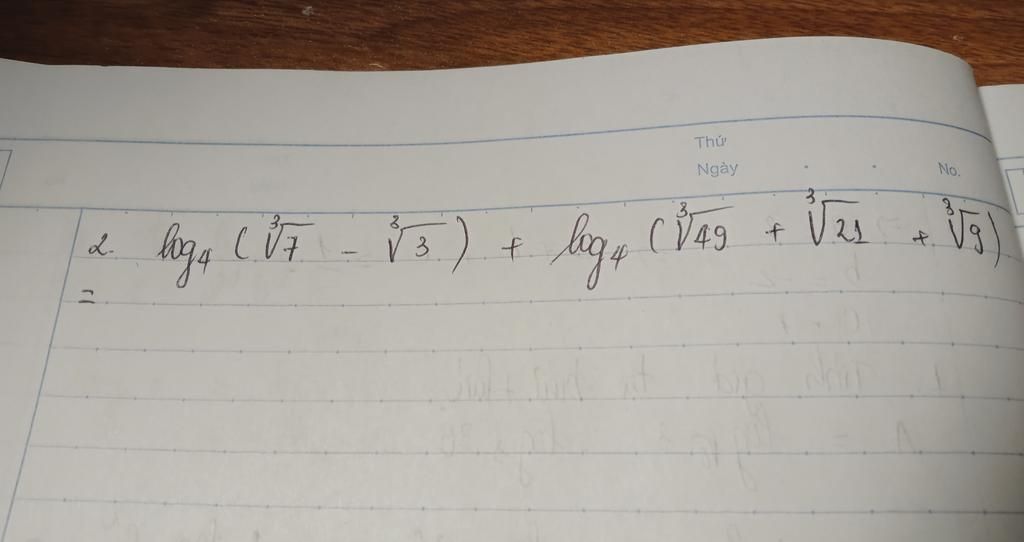 Thứ
Ngày . . No.
2. log₄ (∛7 - ∛3) + log₄ (∛49 + ∛21 + ∛9)
=